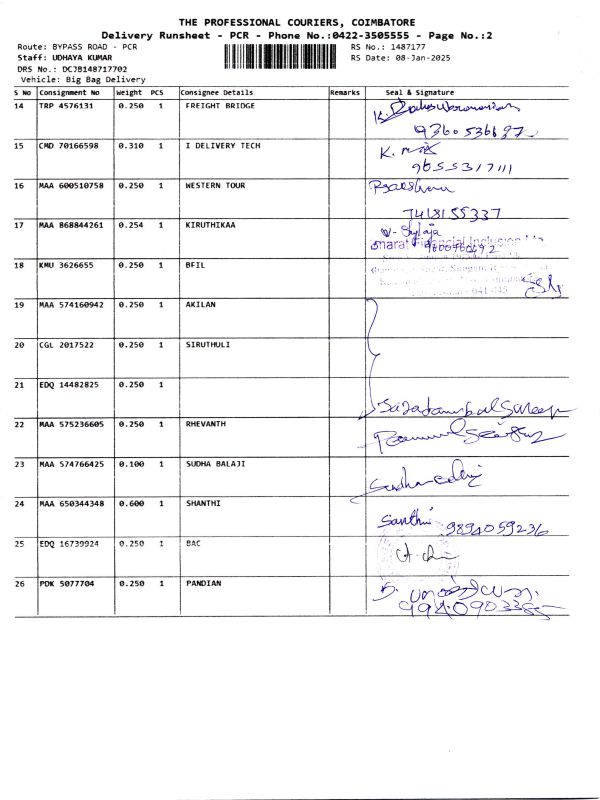 THE PROFESSIONAL COURIERS, COIMBATORE
Delivery Runsheet - PCR - Phone No.:0422-3505555 - Page No.:2
Route: BYPASS ROAD - PCR RS No.: 1487177
Staff: UDHAYA KUMAR RS Date: 08-Jan-2025
DRS No.: DCJB148717702
Vehicle: Big Bag Delivery
S No Consignment No Weight PCS Consignee Details Remarks Seal & Signature
14 TRP 4576131 0.250 1 FREIGHT BRIDGE
15 CMD 70166598 0.310 1 I DELIVERY TECH K.
9655317111
16 MAA 600510758 0.250 1 WESTERN TOUR
7418155337
17 MAA 868844261 0.254 1 KIRUTHIKAA
Financial Inclusion
18 KMU 3626655 0.250 1 BFIL
19 MAA 574160942 0.250 1 AKILAN
20 CGL 2017522 0.250 1 SIRUTHULI
21 EDQ 14482825 0.250 1
22 MAA 575236605 0.250 1 RHEVANTH
23 MAA 574766425 0.100 1 SUDHA BALAJI
24 MAA 650344348 0.600 1 SHANTHI Santhi
9894059236
25 EDQ 16739924 0.250 1 BAC
26 PDK 5077704 0.250 1 PANDIAN